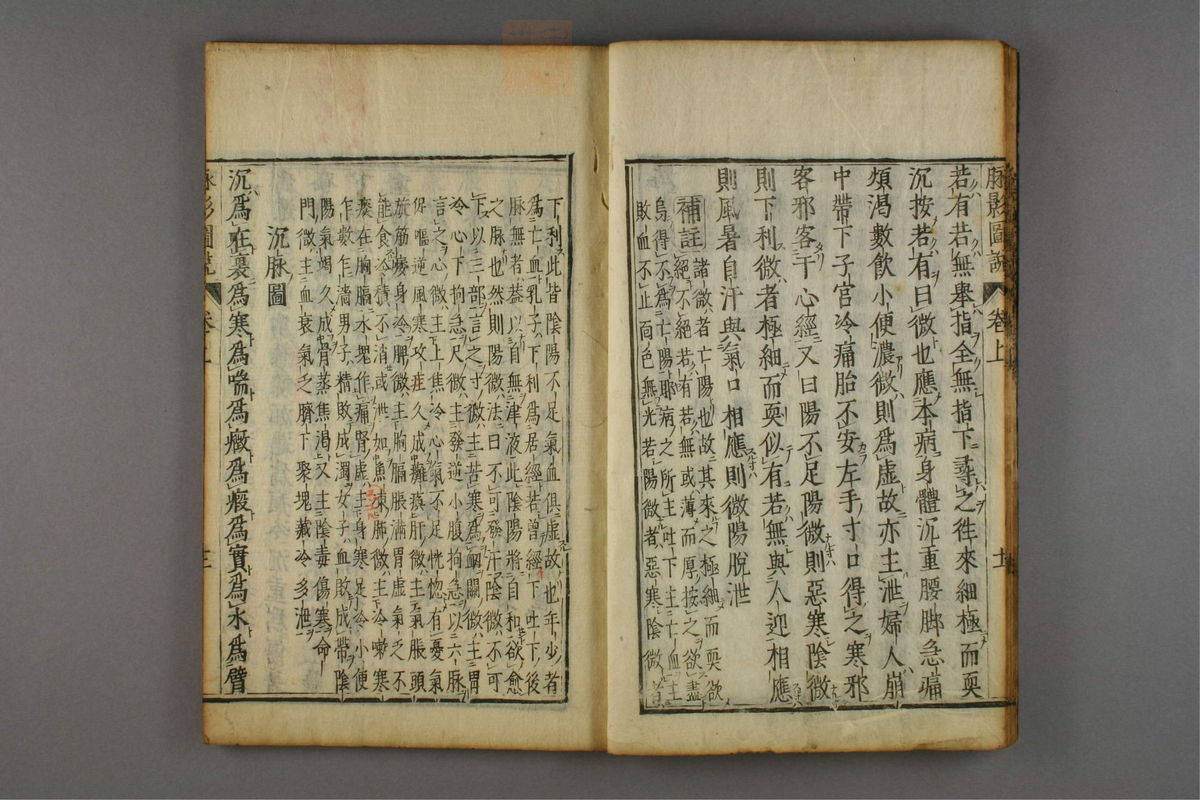 脉影圖説 卷上
若有若無舉指全無指下尋之徃來細極而耎
沉按若有曰微也應本病身體沉重腰脚急痛
煩渴數飲小便濃微則爲虛故亦主泄婦人崩
中帶下子宮冷痛胎不安左手寸口得之寒邪
客邪客于心經又曰陽不足陽微則惡寒陰微
則下利微者極細而耎似有若無與人迎相應
則風暑自汗與氣口相應則微陽脫泄
補註 諸微者亡陽也故其來之極細而耎欲
絕不絕若有若無或薄而厚按之欲盡
烏得不爲亡陽耶病之所主吐下主亡血主
敗血不止面色無光若陽微者惡寒陰微者
下利此皆陰陽不足氣血俱虛故也年少者
爲亡血乳子下利爲居經若曾經下吐下後
脉無者葢以自無津液此陰陽將自和欲愈
之脉也然則陽微法曰不可發汗陰微不可
下以三部言之寸微主苦寒爲衂關微主胃
冷心下拘急尺微主發逆小腹拘急以六脉
言之心微主上焦冷心氣不足恍惚有憂氣
促嘔逆風寒攻疰久成癱瘓肝微主氣脹頭
旋筋痿身冷脾微主胸膈脹滿胃虛氣乏不
能食冷積不消或泄如魚凍肺微主冷嗽寒
痰在胸膈水塊作痛腎虛主身寒足冷小便
乍數乍濇男子精敗成濁女子血敗成帶陰
陽氣竭久成骨蒸焦渴又主陰毒傷寒命
門微主血衰氣乏臍下聚塊藏冷多泄
沉脉圖
沉爲在裏爲寒爲喘爲癥爲瘕爲實爲水爲臂